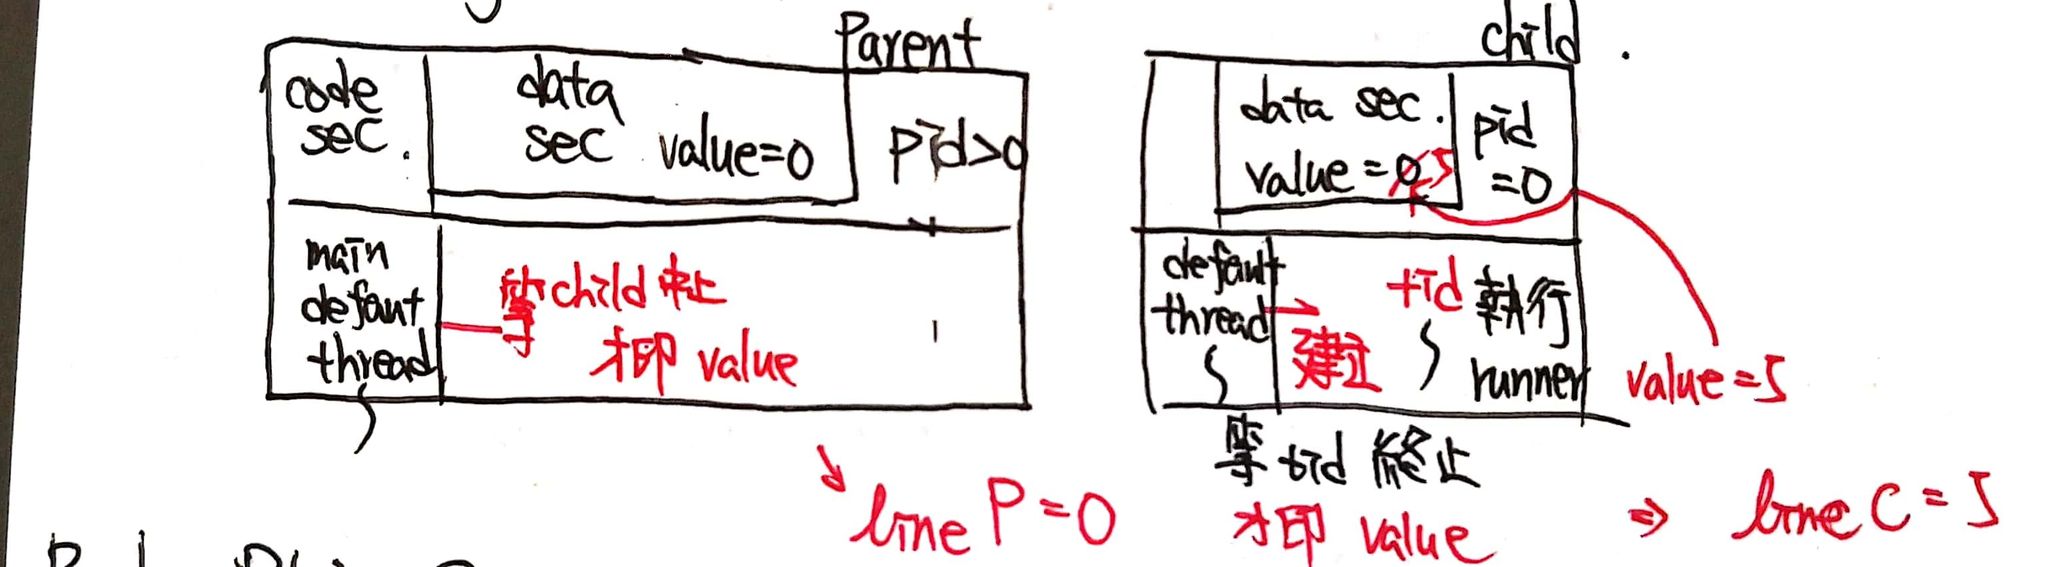 Parent
code
sec.
data
sec value=0
pid>0
main
defaut
thread
等child 終止
才印 value
line P=0
child
data sec.
value=0 5
pid
=0
defaut
thread
建立
tid 執行
runner
value=5
等 tid 終止
才印 value
⇒ line C=5